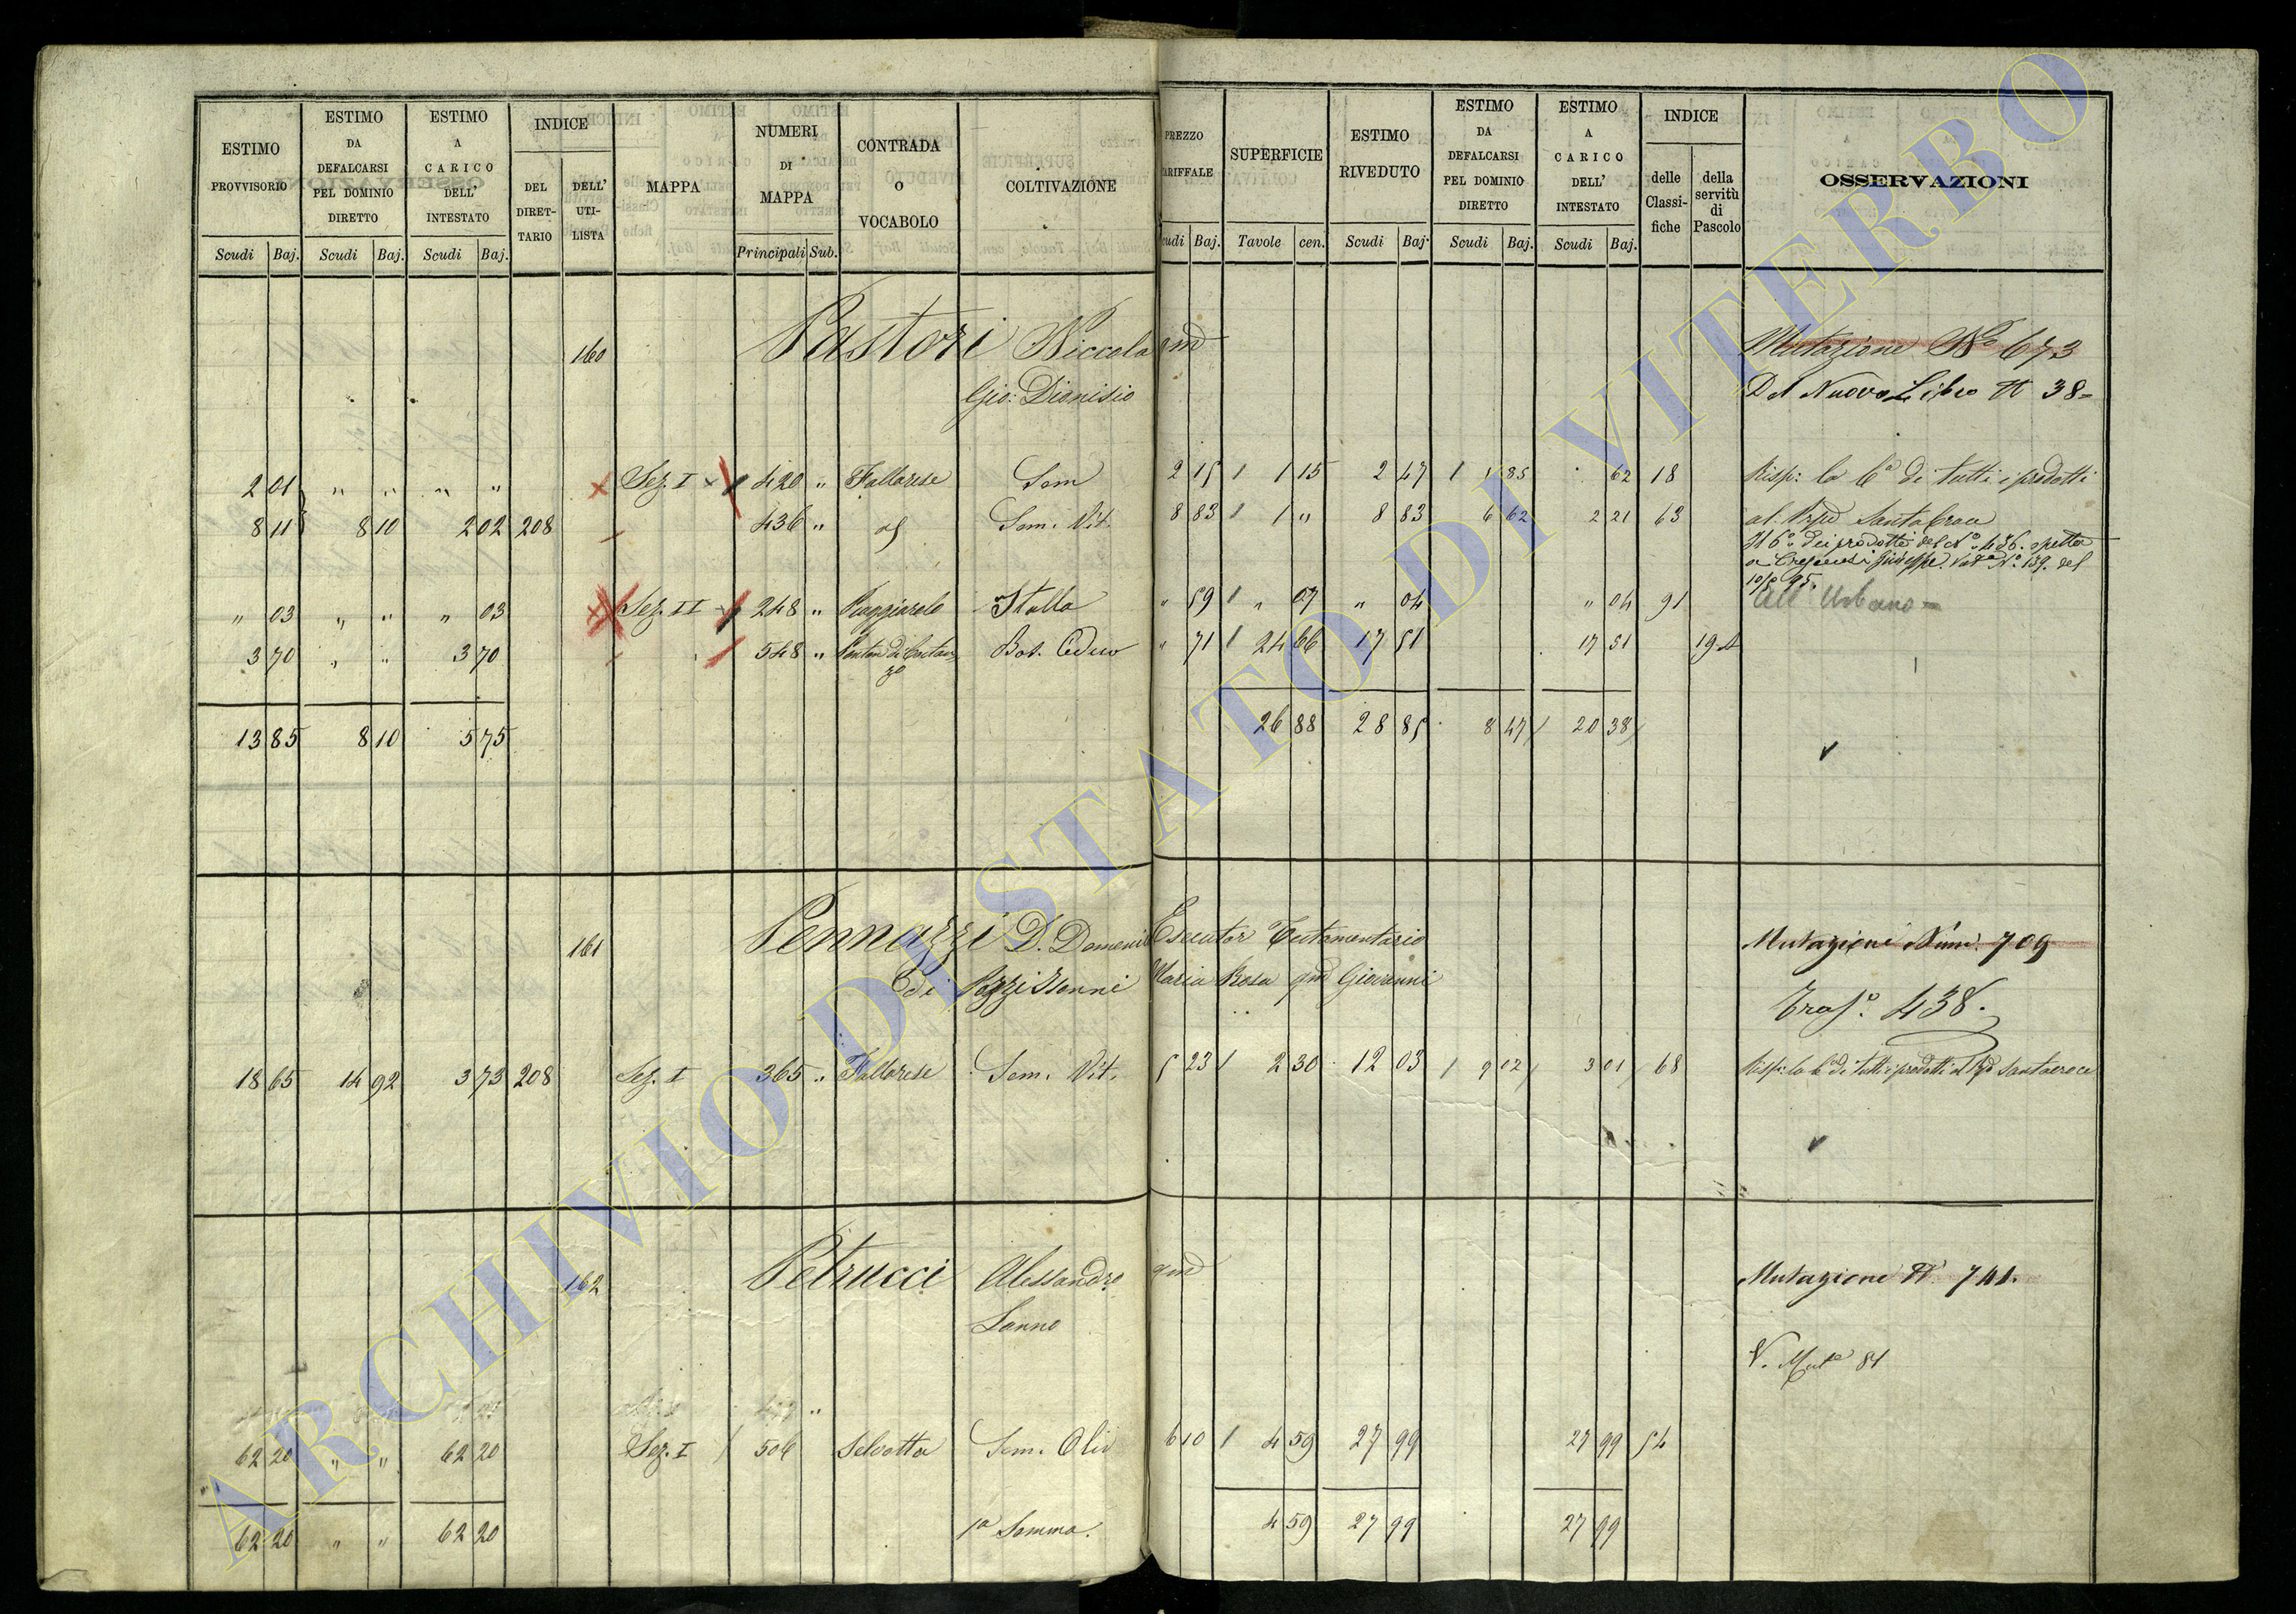 ESTIMO PROVVISORIO Scudi Baj.
ESTIMO DA DEFALCARSI PEL DOMINIO DIRETTO Scudi Baj.
ESTIMO A CARICO DELL' INTESTATO Scudi Baj.
INDICE DEL DIRET-TARIO DELL' UTI-LISTA
MAPPA
NUMERI DI MAPPA Principali Sub.
CONTRADA O VOCABOLO
COLTIVAZIONE
PREZZO TARIFFALE Scudi Baj.
SUPERFICIE Tavole cen.
ESTIMO RIVEDUTO Scudi Baj.
ESTIMO DA DEFALCARSI PEL DOMINIO DIRETTO Scudi Baj.
ESTIMO A CARICO DELL' INTESTATO Scudi Baj.
INDICE delle Classi-fiche della servitù di Pascolo
OSSERVAZIONI
160 Pastori Niccola qm Mutazione No 673
Gio: Dionisio Del Nuovo Libro N 38=
2 01 " " " " Sez. I 420 " Fallarese Sem 2 15 1 15 2 47 1 85 62 18 Risp: la 6a di tutti i prodotti
8 11 8 10 2 02 208 436 " Sem. Vit. 8 83 1 " 8 83 6 62 2 21 63 al Rspd Santa Croce
Il 6o dei prodotti del No 436. spetta
a Crescensi Giuseppe. Vol No 139. del
" 03 " " " 03 Sez. II 248 " Poggiarelo Stalla " 59 " 07 " 04 " 04 91 All' Urbano =
3 70 " " 3 70 548 " Bos. Ceduo " 71 24 66 17 51 17 51 19
13 85 8 10 5 75 26 88 28 85 8 47 20 38
161 Pennazzi D. Domenico Esecutor Testamentario Mutazioni Num. 709
di Maria Rosa qm Giovanni
Traso. 438.
18 65 14 92 3 73 208 Sez. I 365 " Fallarese Sem. Vit. 5 23 2 30 12 03 9 02 3 01 68 Risp: la 6a di tutti i prodotti al Rspd Santacroce
162 Petrucci Alessandro qm Mutazione N. 741.
Sanno
V. Mute 81
62 20 " " 62 20 Sez. I 506 Selvotta Sem. Oliv 6 10 4 59 27 99 27 99 54
62 20 " " 62 20 1a Somma. 4 59 27 99 27 99
ARCHIVIO DI STATO DI VITERBO